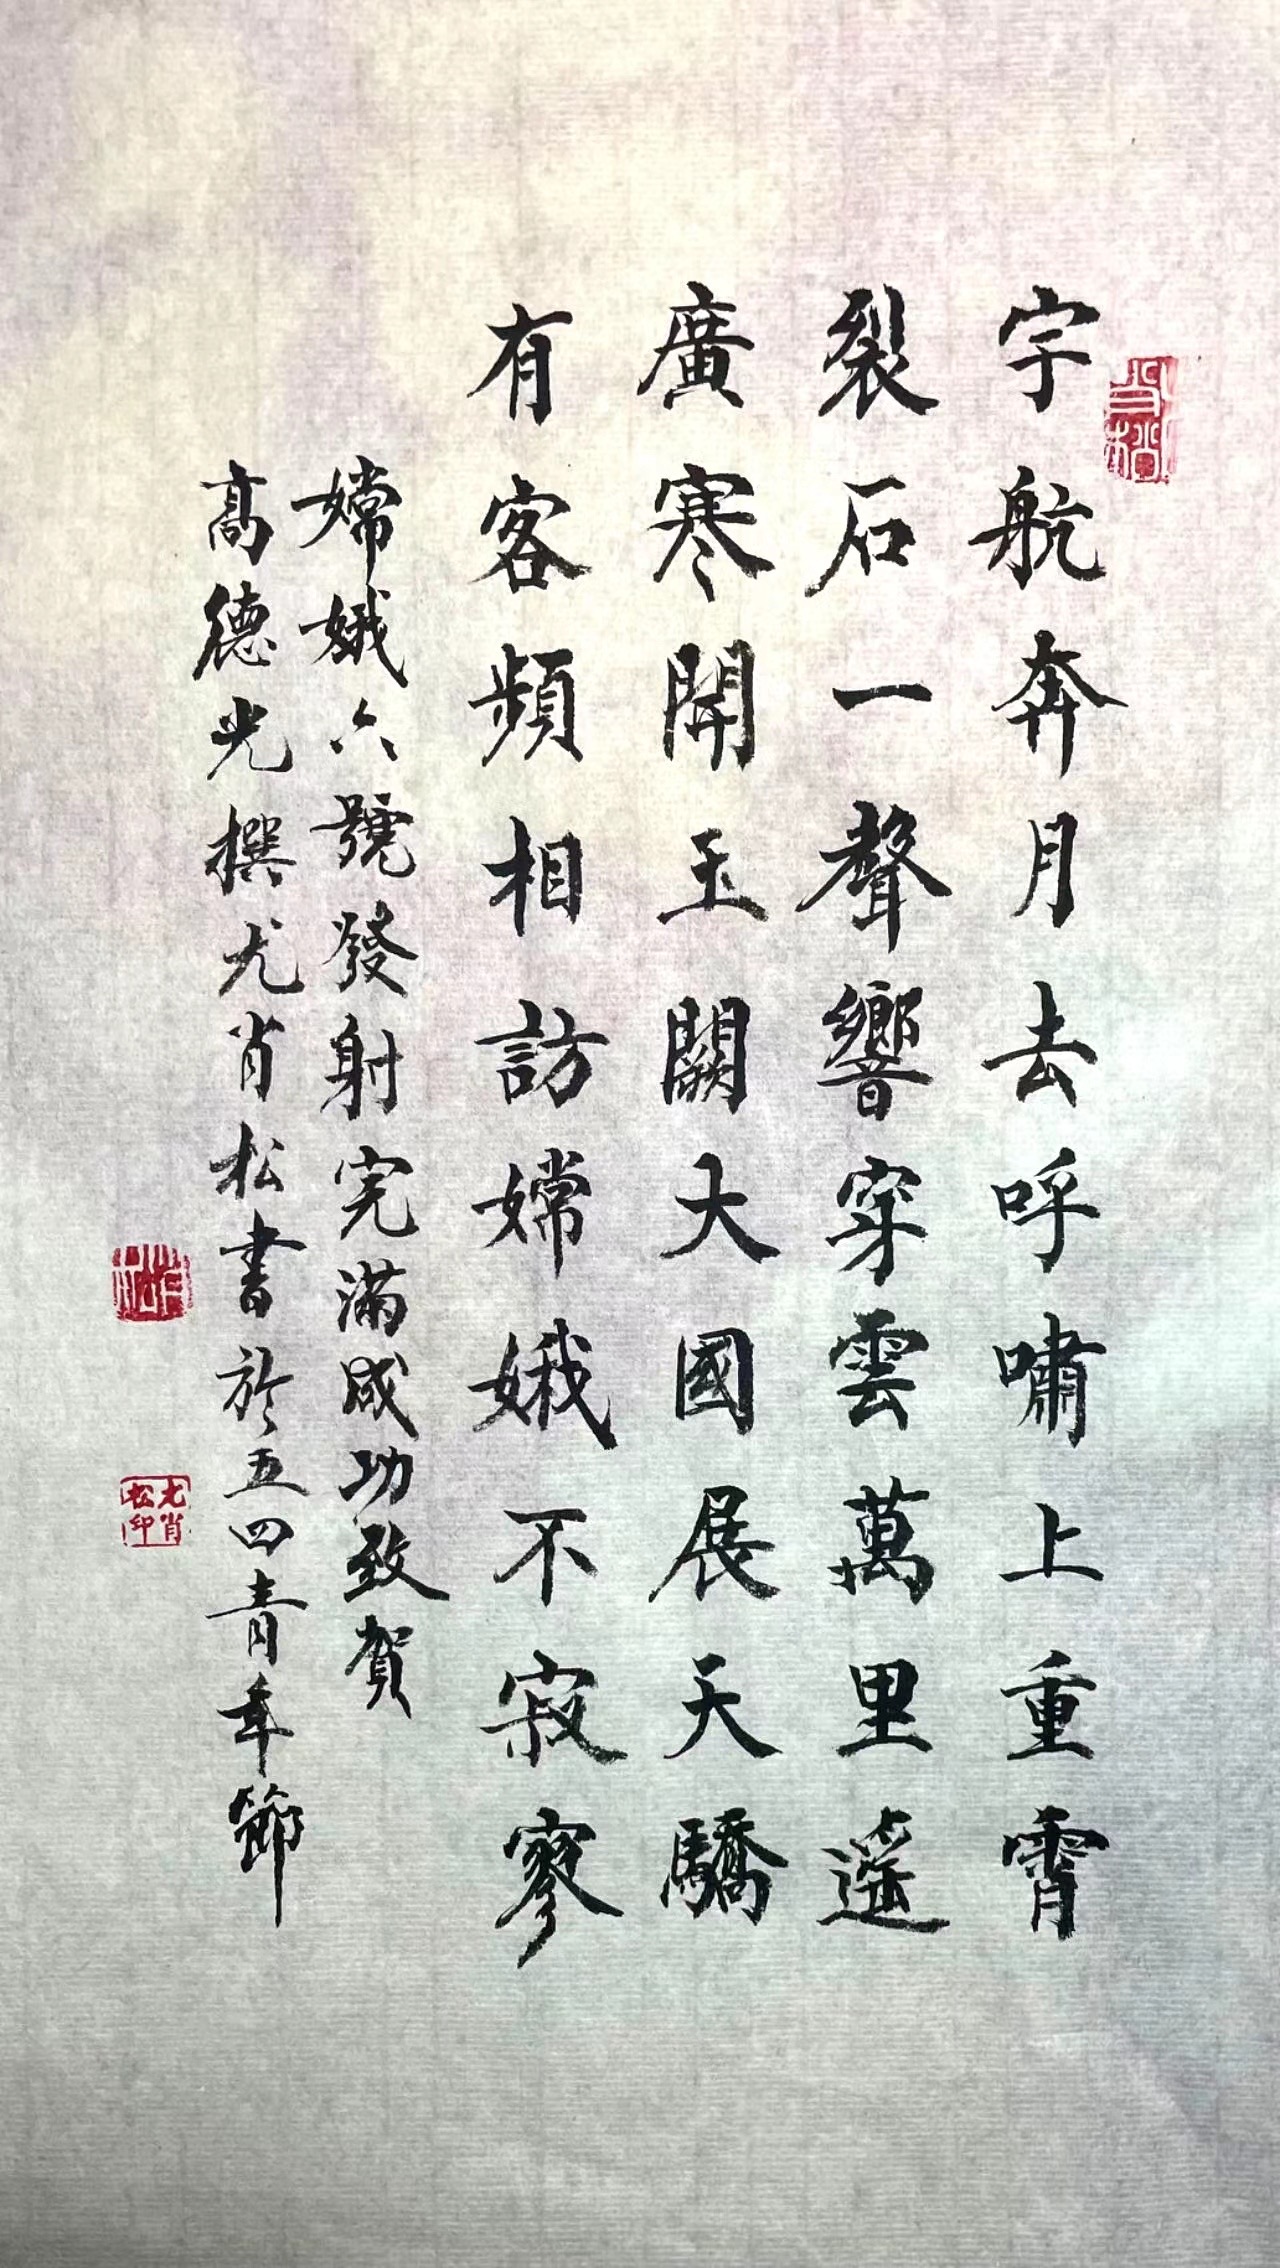 宇航奔月去呼嘯上重霄
裂石一聲響穿雲萬里遙
廣寒開玉闕大國展天驕
有客頻相訪嫦娥不寂寥
嫦娥六號發射完滿成功致賀
高德光撰尤肖松書於五四青年節
尤肖松印